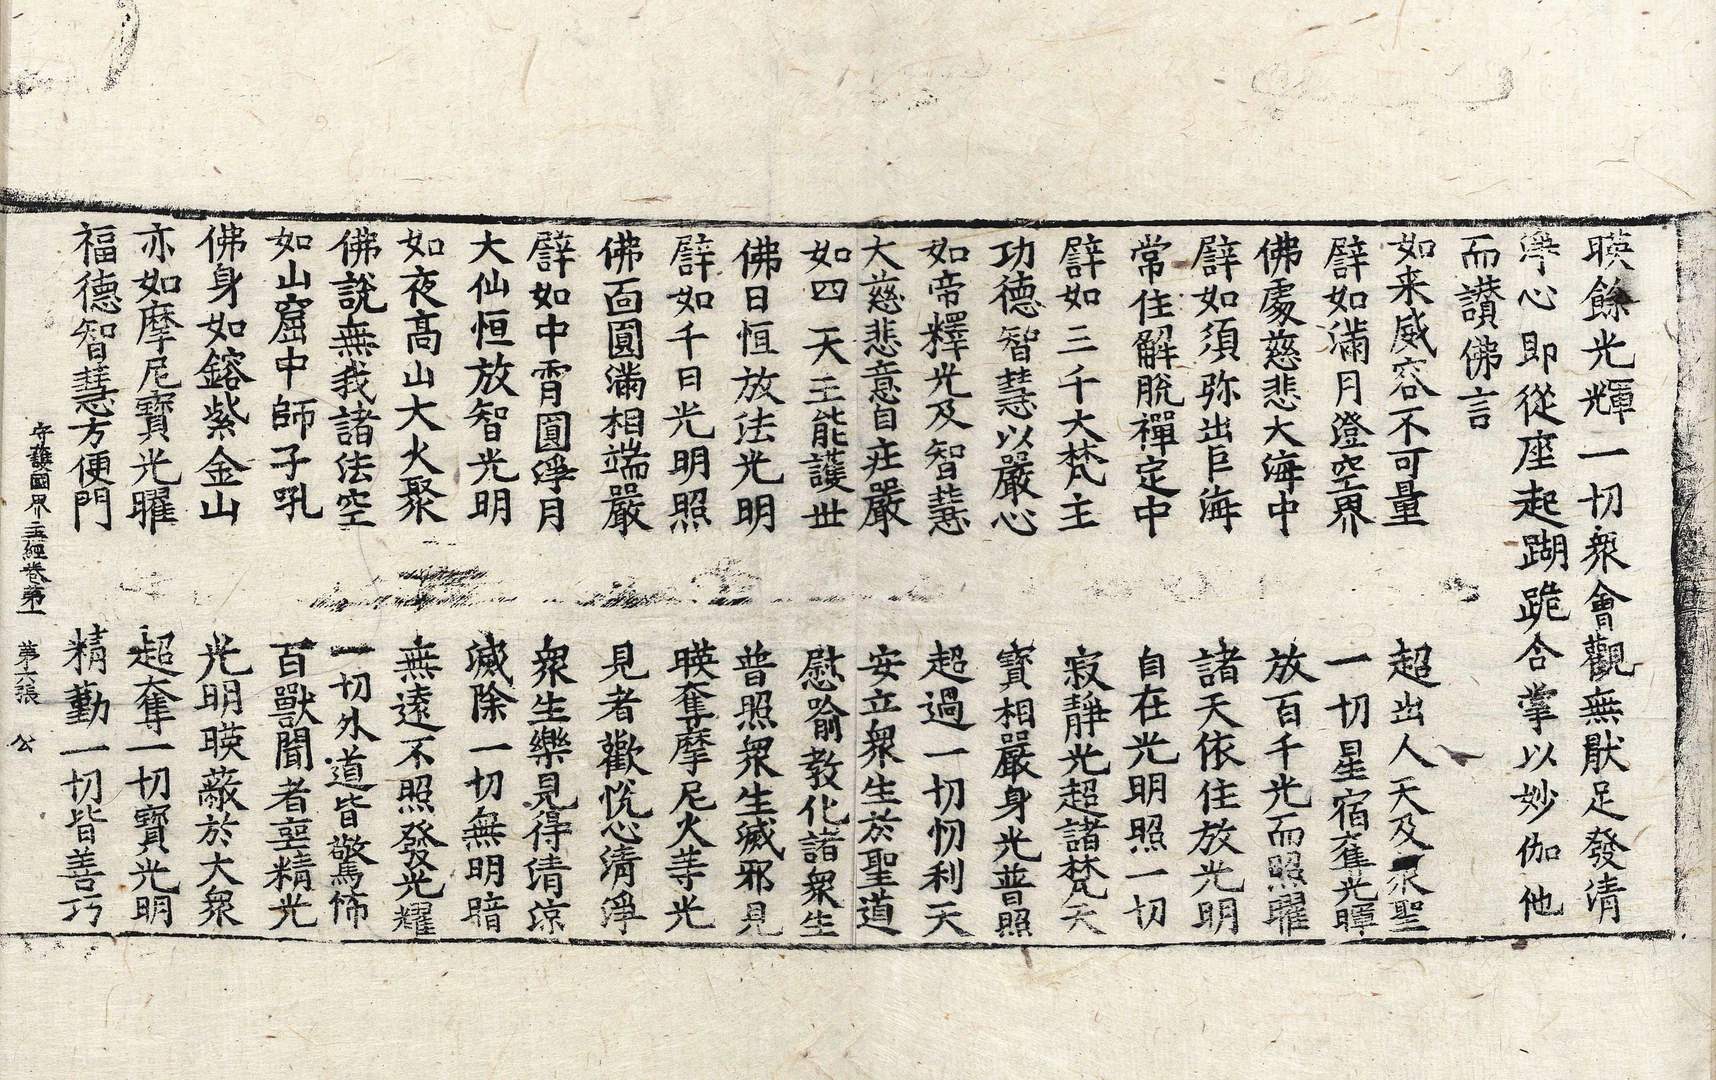 暎餘光輝一切衆會觀無猒足發清
淨心即從座起蹋跪合掌以妙伽他
而讃佛言
如来威容不可量　超出人天及衆聖
譬如滿月澄空界　一切星宿奪光暉
佛處慈悲大海中　放百千光而照曜
譬如須弥出巨海　諸天依住放光明
常住解脫禪定中　自在光明照一切
譬如三千大梵主　寂靜光超諸梵天
功德智慧以嚴心　寳相嚴身光普照
如帝釋光及智慧　超過一切忉利天
大慈悲意自莊嚴　安立衆生於聖道
如四天王能護世　慰喻教化諸衆生
佛日恒放法光明　普照衆生滅邪見
譬如千日光明照　暎奪摩尼火等光
佛面圓滿相端嚴　見者歡悅心清淨
譬如中霄圓淨月　衆生樂見得清涼
大仙恒放智光明　滅除一切無明暗
如夜髙山大火聚　無遠不照發光耀
佛說無我諸法空　一切外道皆驚怖
如山窟中師子吼　百獸聞者喪精光
佛身如鎔紫金山　光明暎蔽於大衆
亦如摩尼寳光曜　超奪一切寳光明
福德智慧方便門　精勤一切皆善巧
守護國界主經卷第一　第六張　公